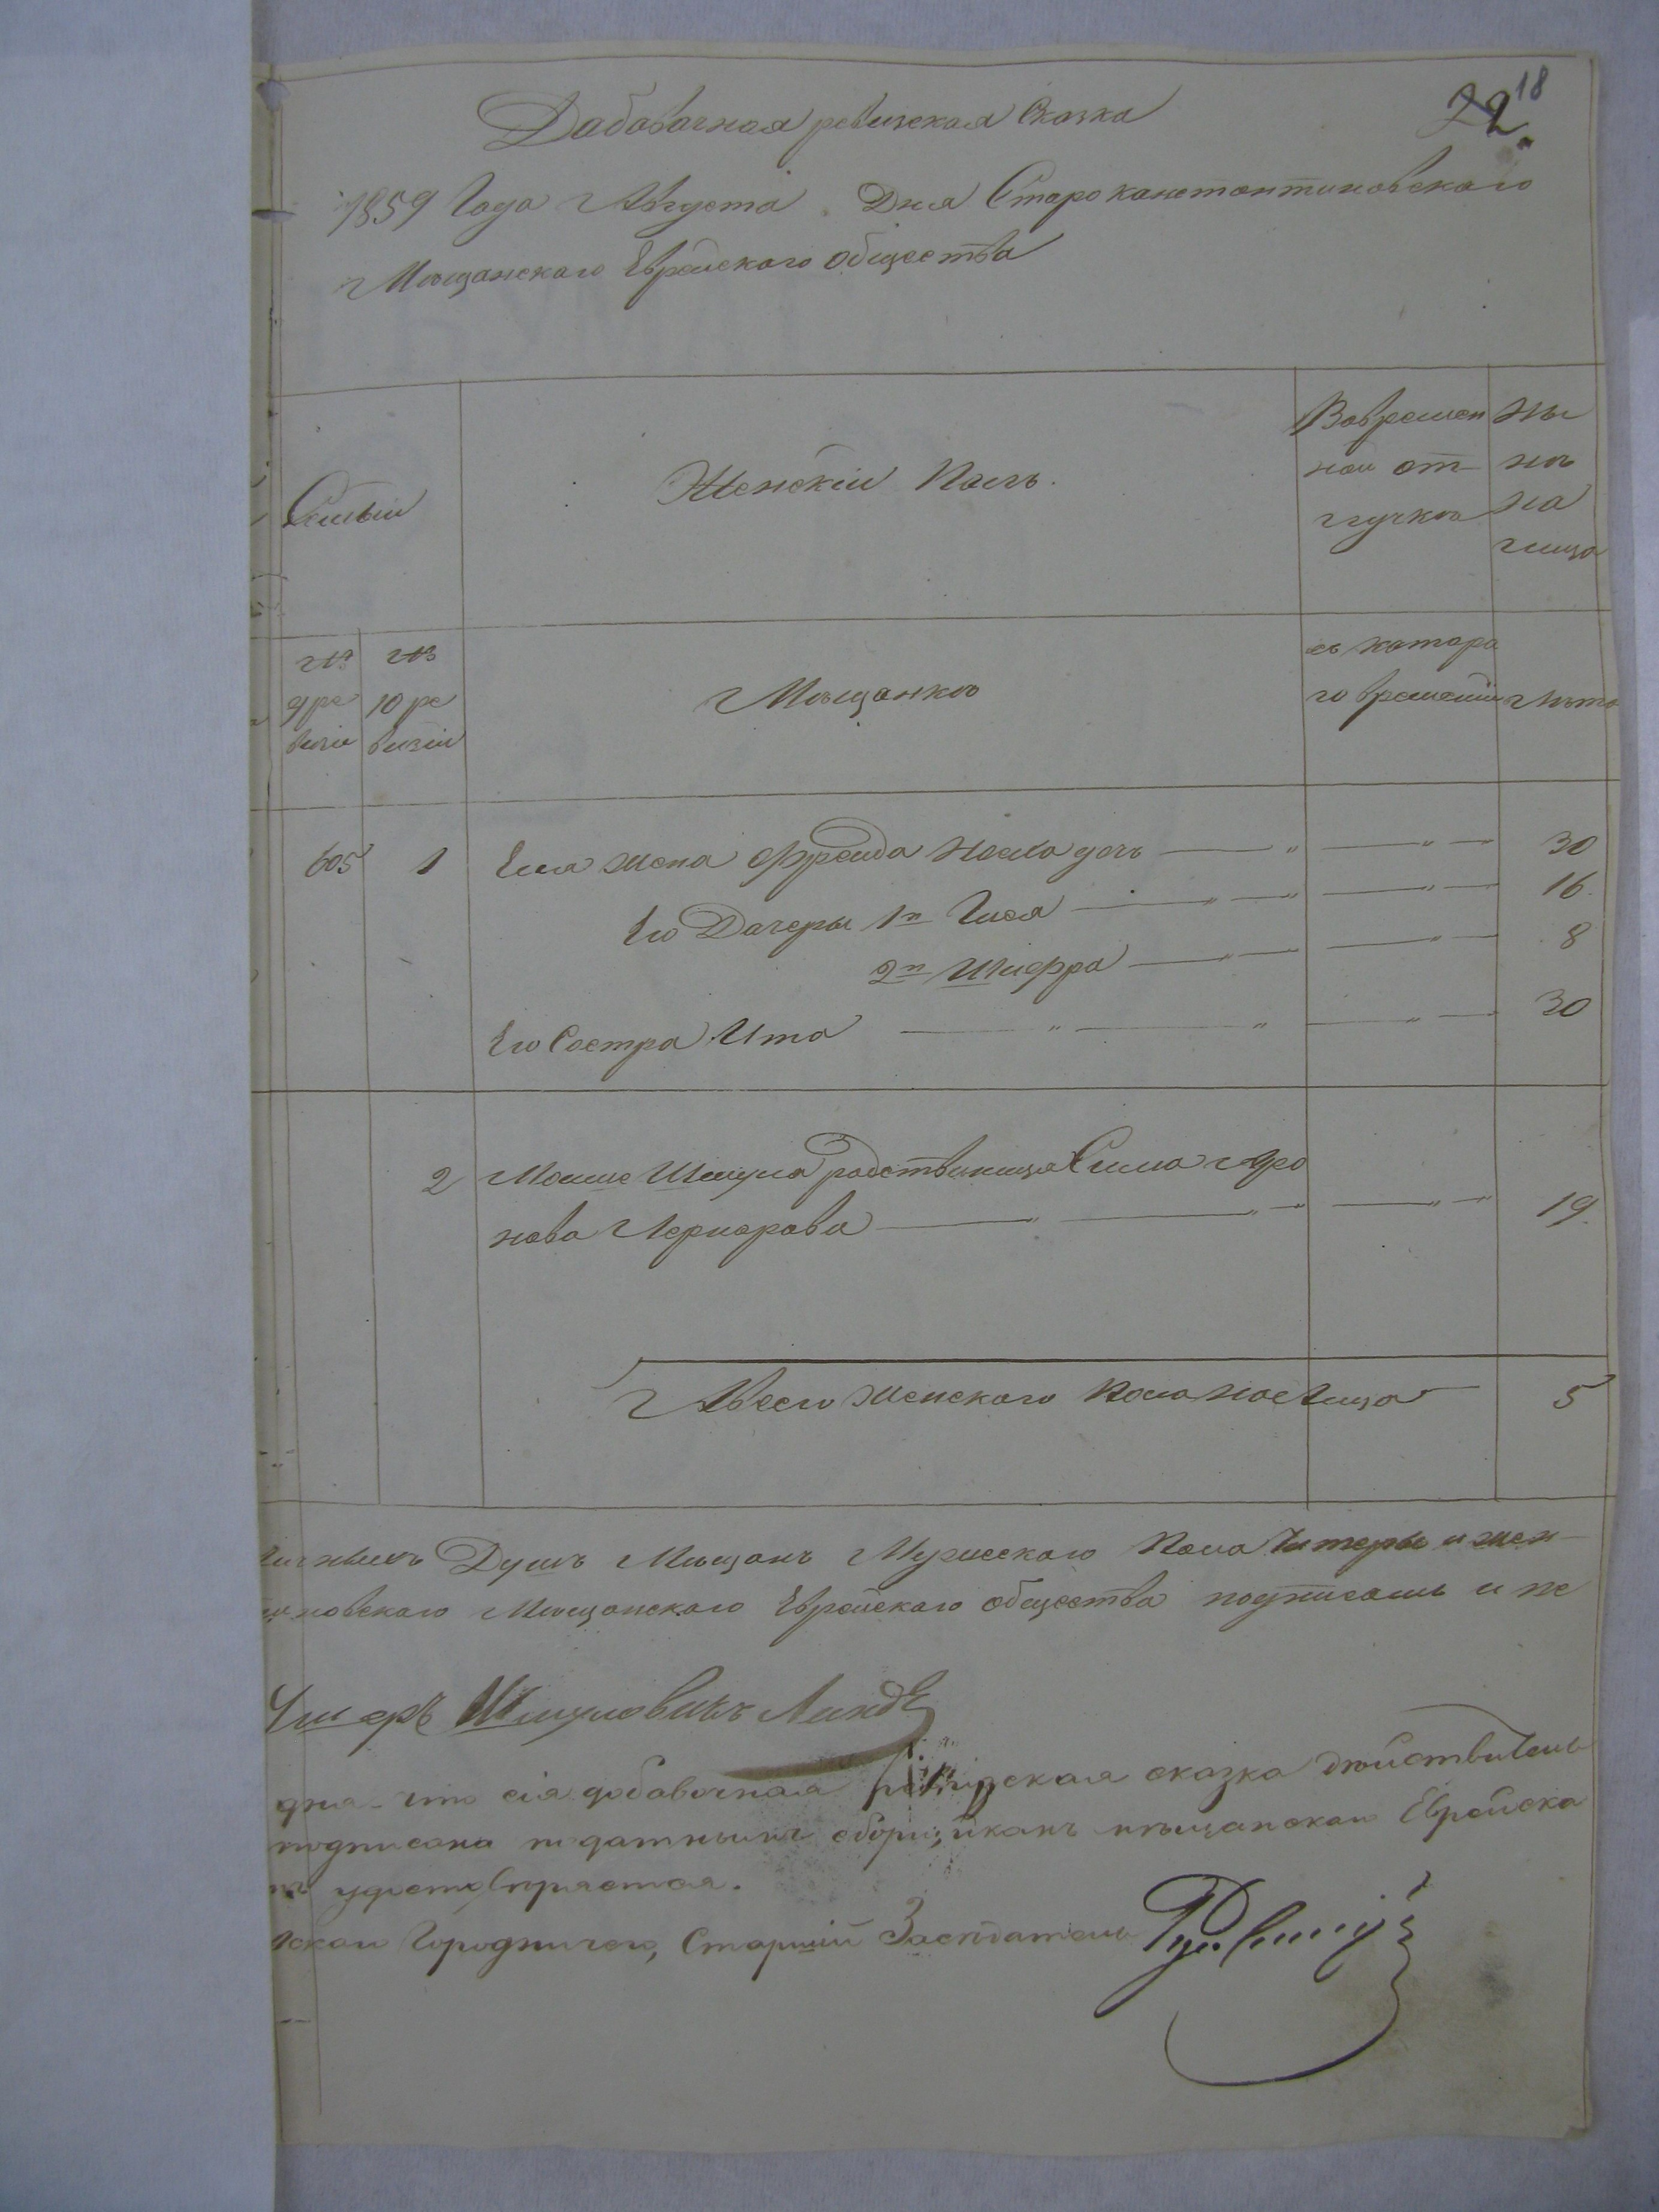 22 18
Дабавачная ревизская Сказка
1859 Года Августа Дня Староканстантиновскаго
Мѣщанскаго Еврейскаго общества
Семьи
Женскій Полъ.
Вовремен
ной от-
лучкѣ
Ны
нѣ
на
лица
№
9 ре
визіи
№
10 ре
визіи
Мѣщанкѣ
съ катора
го времени
лѣта
605 1 Ела жена Фрейда Носко дочь — „ — „ — 30
Его Дачеры 1я Гися — „ — „ — „ — 16.
2я Шифра — „ — — „ — 8
Его Сестра Ита — „ — „ — „ — 30
2 Мошие Шмула родственица Сима Аро
нова — „ — „ — — „ — 19.
Всего Женскаго Пола налица — 5
личныхъ Душъ Мѣщанъ Мужескаго Пола Читеры и жен-
новскаго Мѣщанскаго Еврейскаго общества подписалъ и пе
Ушеръ Шмуловичъ Линде
дня - что сія добавочная ревизская сказка дѣйствитель
подписана податнымъ сборщикомъ мѣщанскаго Еврейска
удостовѣряется.
скаго Городничего, Старшій Засѣдатель